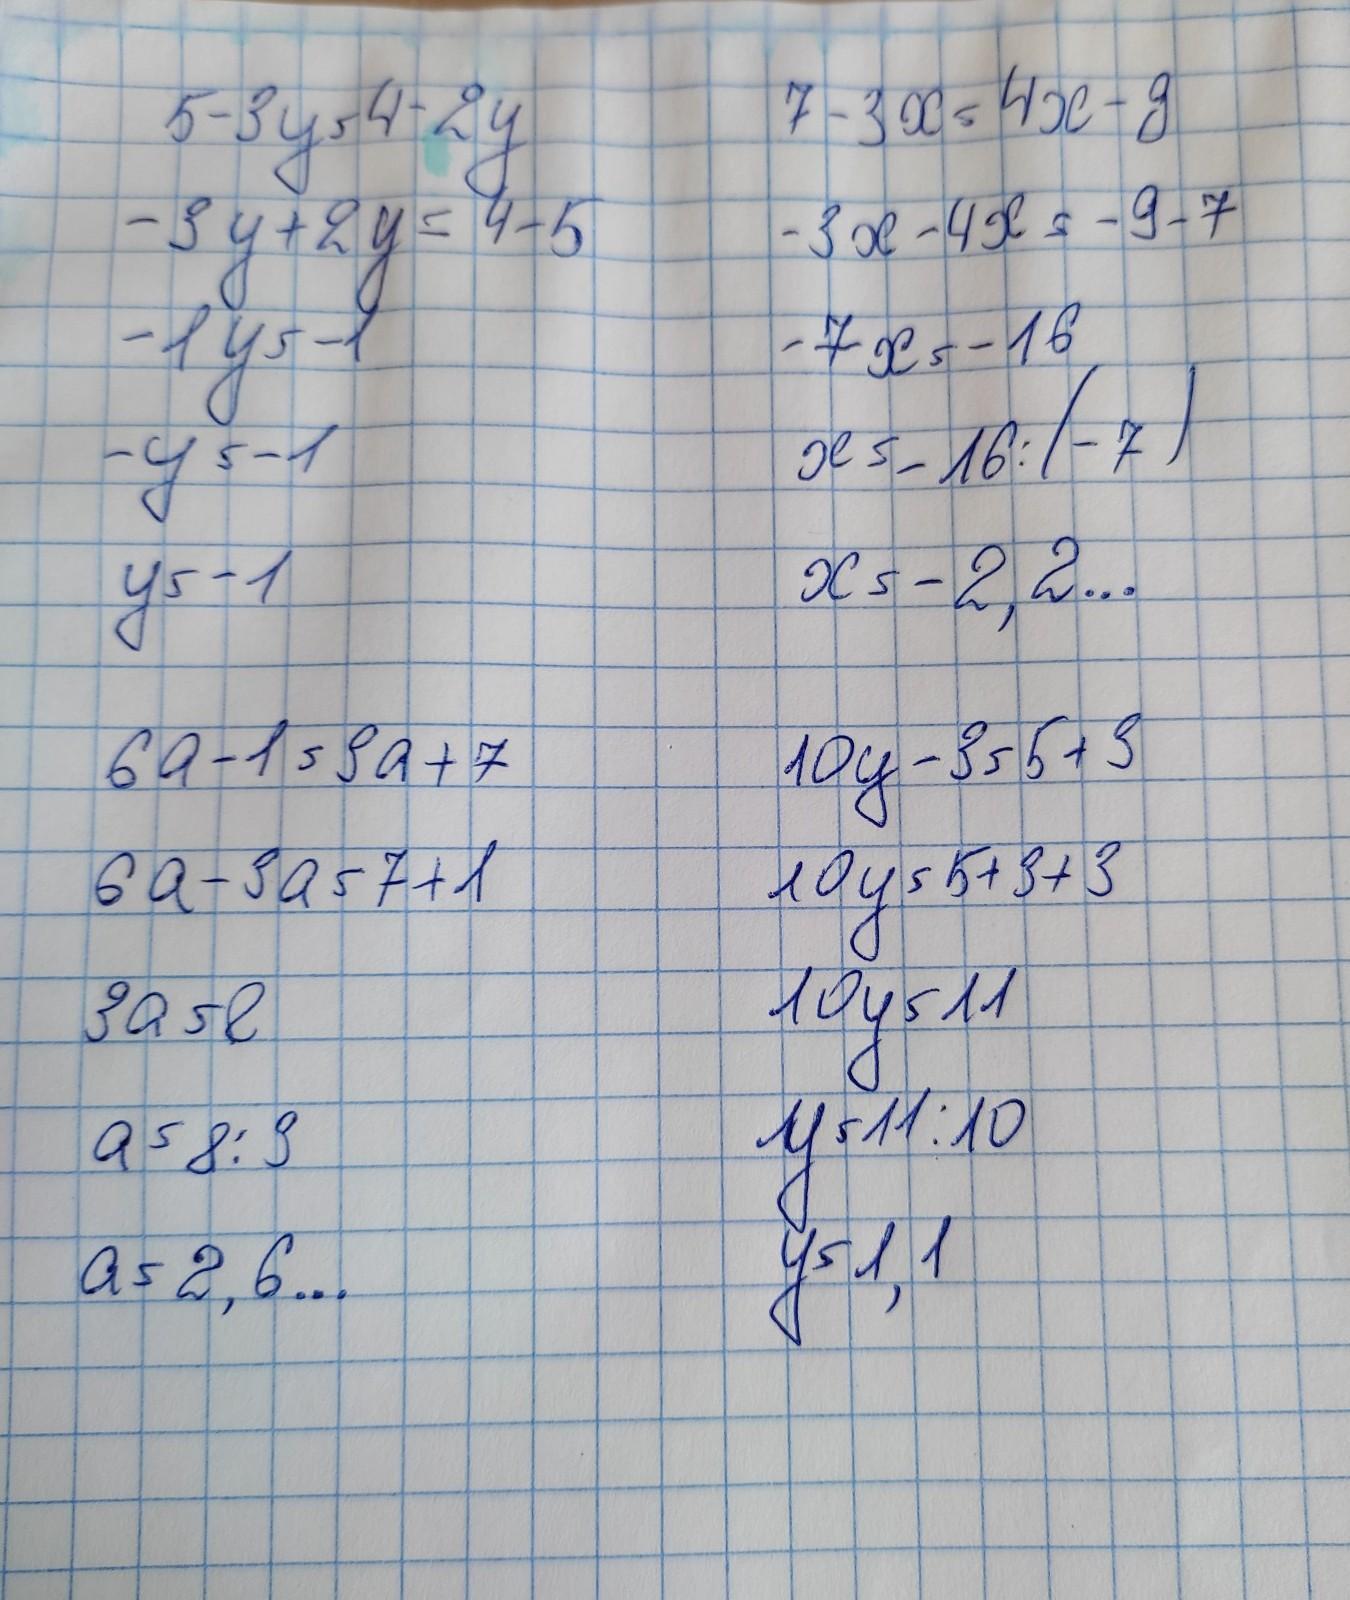 5-3y=4-2y
-3y+2y=4-5
-1y=-1
-y=-1
y=-1
7-3x=4x-9
-3x-4x=-9-7
-7x=-16
x=-16:(-7)
x=-2,2...
6a-1=3a+7
6a-3a=7+1
3a=8
a=8:3
a=2,6...
10y-3=5+3
10y=5+3+3
10y=11
y=11:10
y=1,1